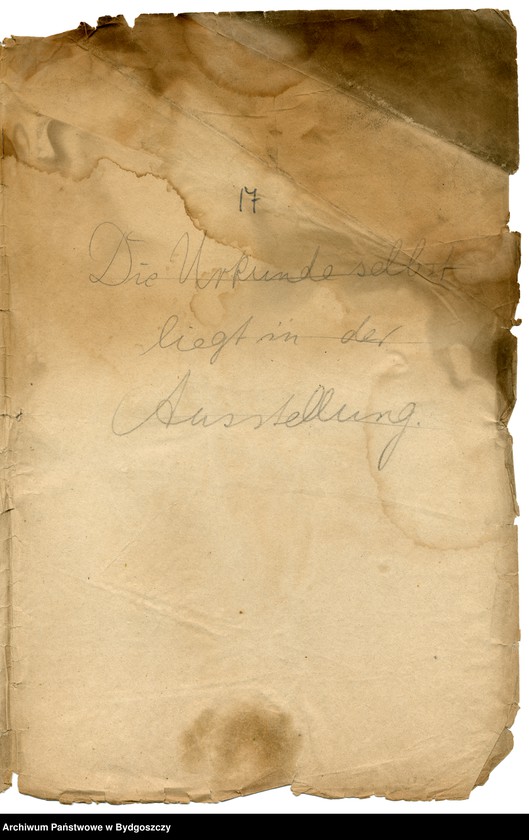 17
Die Urkunde selbst
liegt in der
Ausstellung.
Archiwum Państwowe w Bydgoszczy